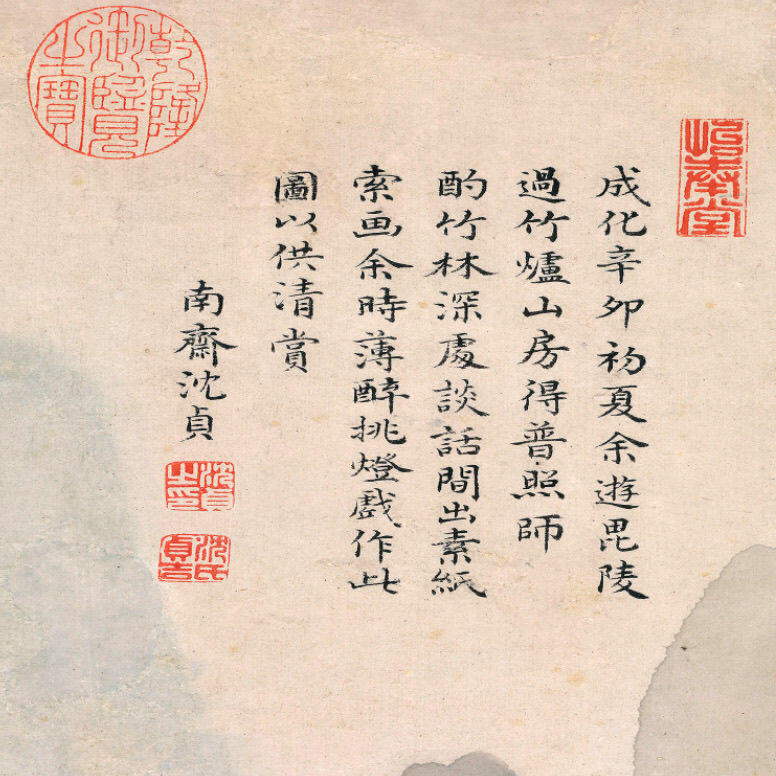 成化辛卯初夏余遊毘陵
過竹爐山房得普照師
酌竹林深處談話間出素紙
索画余時薄醉挑燈戲作此
圖以供清賞
南齋沈貞
沈貞之印
沈氏貞吉
乾隆御覽之寶